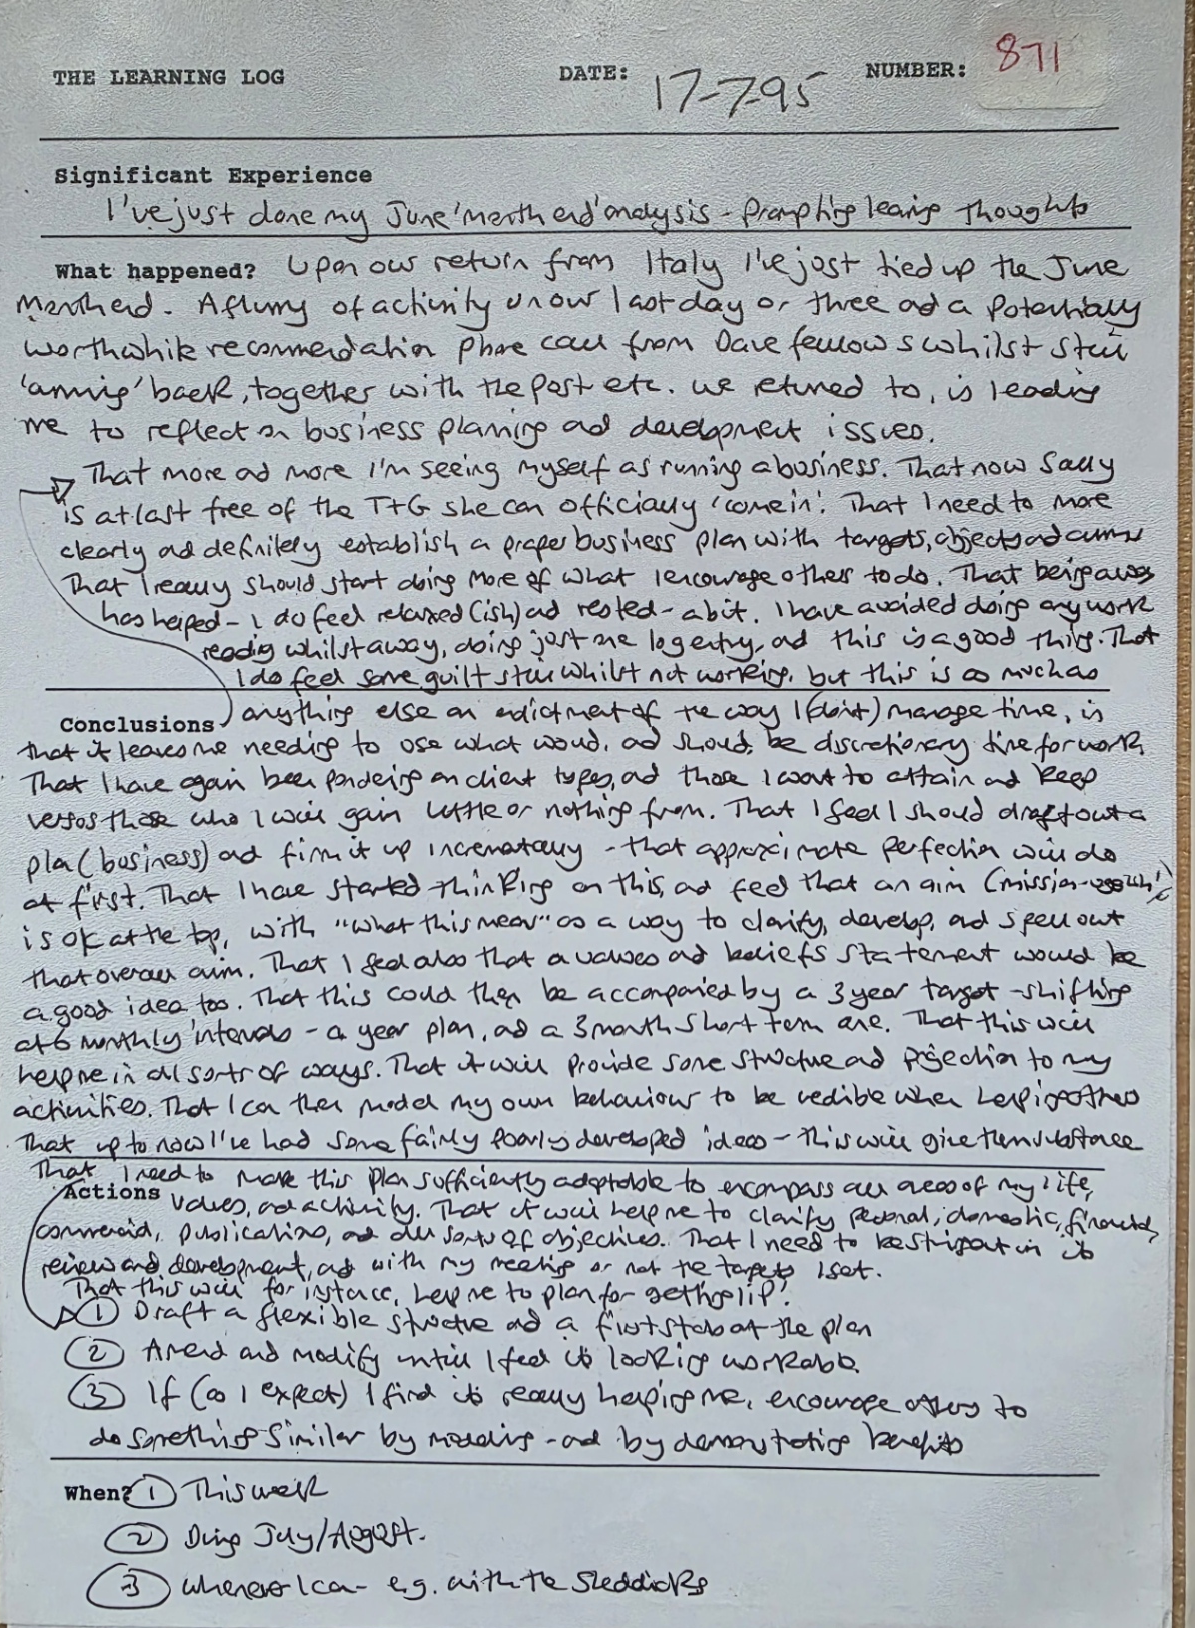 THE LEARNING LOG DATE: 17-7-95 NUMBER: 871
Significant Experience
I've just done my June 'month end' analysis - prompting learning thoughts
What happened? Upon our return from Italy I've just tied up the June
Month end. A flurry of activity on our last day or three and a potentially
worthwhile recommendation phone call from Dave fellows whilst still
'arriving' back, together with the post etc. we returned to, is leading
me to reflect on business planning and development issues.
That more and more I'm seeing myself as running a business. That now Sally
is at last free of the T+G she can officially 'come in'. That I need to more
clearly and definitely establish a proper business plan with targets, objects and
That I really should start doing more of what I encourage others to do. That being away
has helped - I do feel relaxed (ish) and rested - a bit. I have avoided doing any work
reading whilst away, doing just one log entry, and this is a good thing. That
I do feel some guilt still whilst not working, but this is as much as
Conclusions anything else an indictment of the way I (don't) manage time, in
that it leaves me needing to use what would, and should, be discretionary time for work.
That I have again been pondering on client types, and those I want to attain and keep
versus those who I will gain little or nothing from. That I feel I should draft out a
plan (business) and firm it up incrementally - that approximate perfection will do
at first. That I have started thinking on this, and feel that an aim (mission-
is ok at the top, with "what this means" as a way to clarify, develop, and spell out
that overall aim. That I feel also that a values and beliefs statement would be
a good idea too. That this could then be accompanied by a 3 year target - shifting
at 6 monthly intervals - a year plan, and a 3 month short term one. That this will
help me in all sorts of ways. That it will provide some structure and projection to my
activities. That I can then model my own behaviour to be credible when helping others
That up to now I've had some fairly poorly developed ideas - this will give them substance
That I need to make this plan sufficiently adaptable to encompass all areas of my life,
Actions values, and activity. That it will help me to clarify personal, domestic, financial,
commercial, publications, and all sorts of objectives. That I need to be stringent in its
review and development, and with my meeting or not the targets I set.
That this will for instance, help me to plan for getting slip!
① Draft a flexible structure and a first stab at the plan
② Amend and modify until I feel it's looking workable.
③ If (as I expect) I find it's really helping me, encourage others to
do something similar by modelling - and by demonstrating benefits
When? ① This week
② During July/August.
③ Whenever I can - e.g. with the Sheddicks